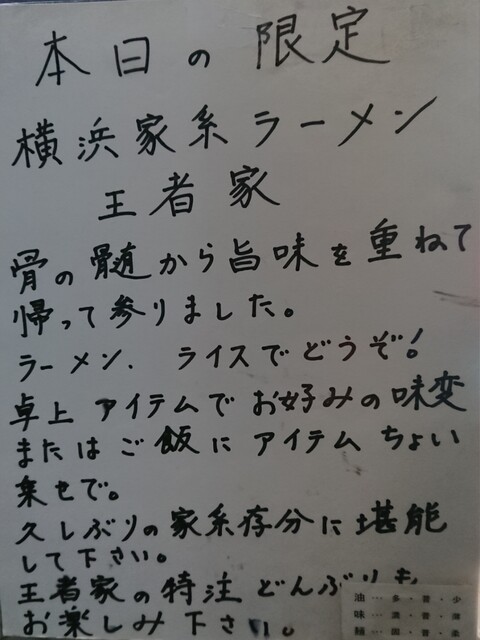 本日の限定
横浜家系ラーメン
王者家
骨の髄から旨味を重ねて
帰って参りました。
ラーメン、ライスでどうぞ!
卓上アイテムでお好みの味変
またはご飯にアイテムちょい
乗せで。
久しぶりの家系存分に堪能
して下さい。
王者家の特注どんぶりも
お楽しみ下さい。
油…多・普・少
味…濃・普・薄
麺